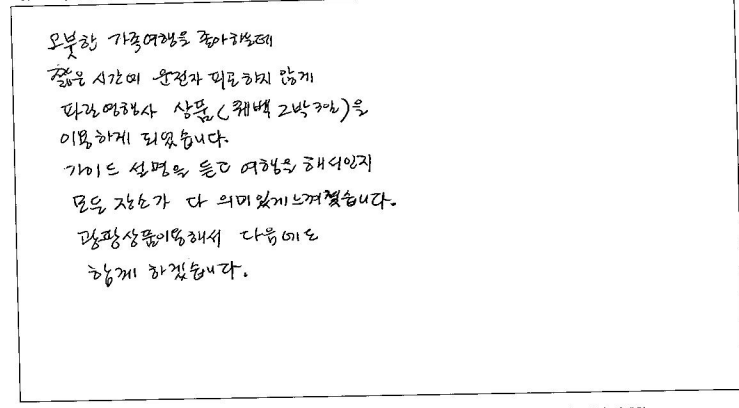 오붓한 가족여행을 좋아하는데
짧은 시간에 운전자 피로하지 않게
파란여행사 상품(퀘백 2박3일)을
이용하게 되었습니다.
가이드 설명을 듣고 여행을 해서인지
모든 장소가 다 의미있게 느껴졌습니다.
상품이용해서 다음에도
함께 하겠습니다.